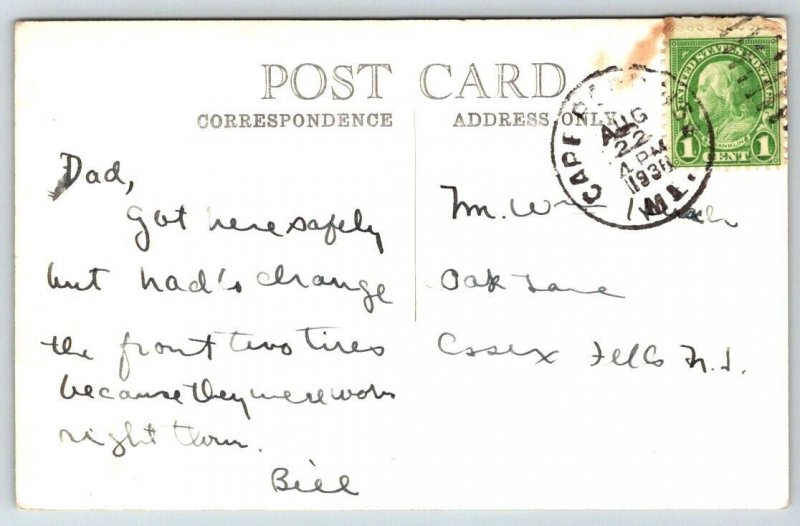 POST CARD
CORRESPONDENCE
ADDRESS ONLY
UNITED STATES POSTAGE
FRANKLIN
1 CENT 1
AUG
22
4 PM
1930
ME.
Dad,
got here safely
but had'o change
the front two tires
because they were worn
right thru.
Bill
Mr. Wm
Oak Lane
Essex Fells N.J.